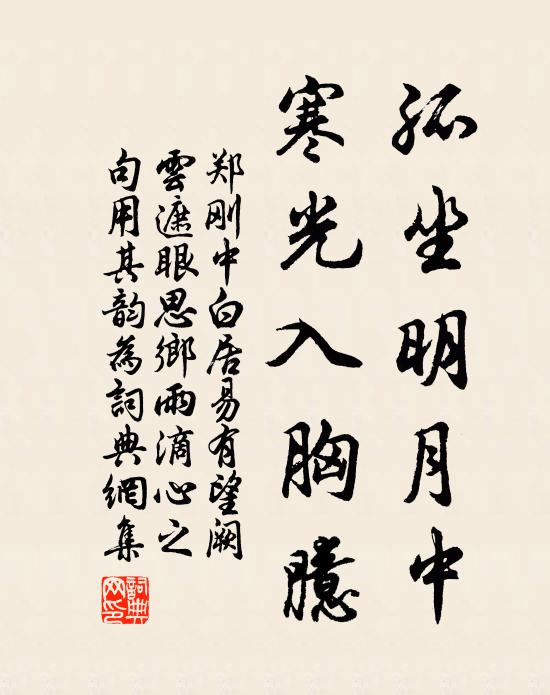 孤坐明月中
寒光入胸臆
郑刚中白居易有望阙
雲遮眼思鄉雨滴心之
句用其韵為詞典網集
詞典網印